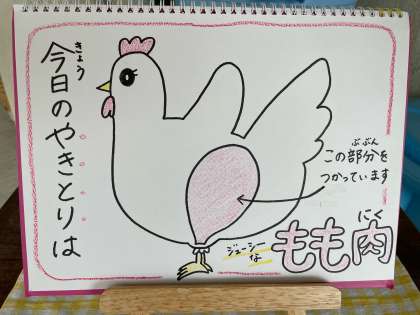 今日のやきとりは
きょう
この部分を
ぶぶん
つかっています
ジューシーな
もも肉
にく